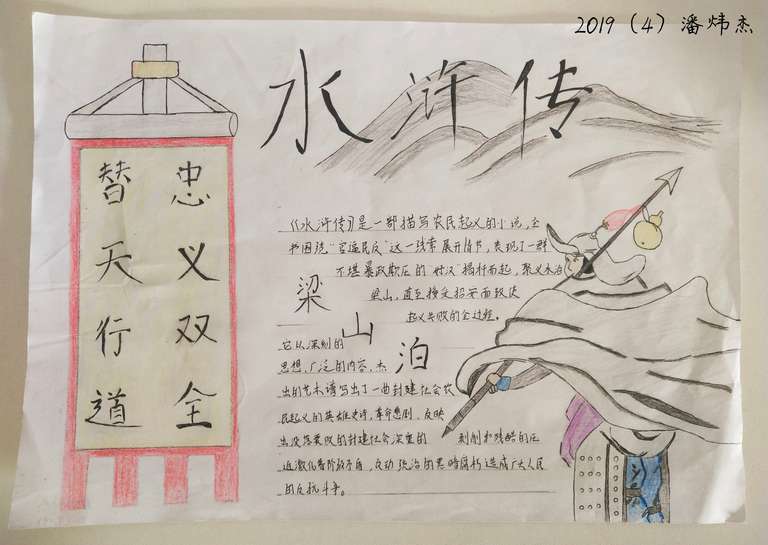 2019（4）潘炜杰
水浒传
忠义双全
替天行道
《水浒传》是一部描写农民起义的小说，全
书围绕"官逼民反"这一线索展开情节，表现了一群
不堪暴政欺压的"好汉"揭杆而起，聚义水泊
梁山，直至接受招安而致使
起义失败的全过程。
梁山泊
它从深刻的
思想，广泛的内容，杰
出的艺术谱写出了一曲封建社会农
民起义的英雄史诗，革命悲剧，反映
出没落衰败的封建社会深重的 剥削和残酷的压
迫激化着阶级矛盾，反动统治的黑暗腐朽造成广大人民
的反抗斗争。